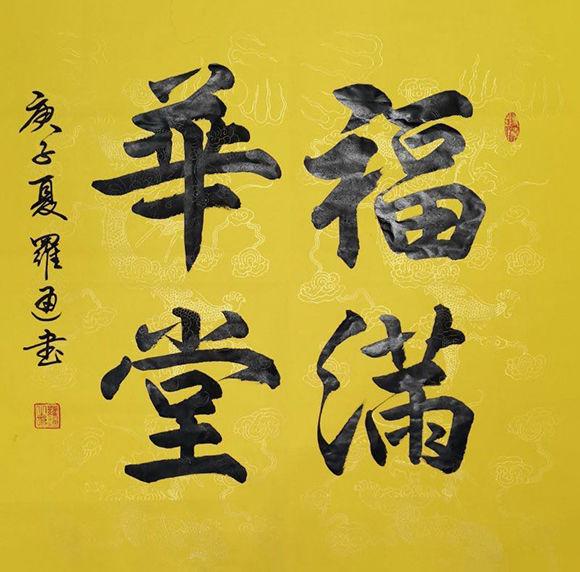 福滿
華堂
庚子夏羅通书